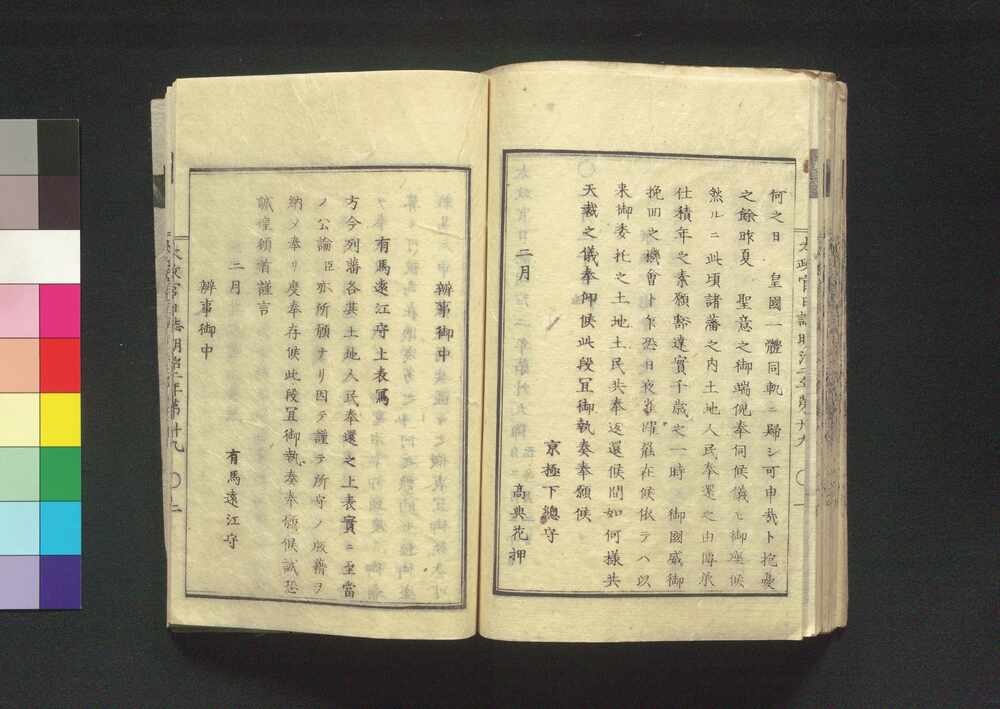 何之日　皇國一體同軌ニ歸シ可申哉ト抱憂
之餘昨夏　聖意之御端倪奉伺候儀モ御座候
然ルニ此頃諸藩之内土地人民奉還之由傳承
仕積年之素願豁達實千歳之一時　御國威御
挽回之機會ト乍恐日夜雀躍罷在候依テハ以
来御委托之土地土民共奉返還候間如何樣共
天裁之儀奉仰候此段冝御執奏奉願候
二月　京極下總守
高典花押
太政官日誌明治二年第廿九　〇　一
辨事御中
有馬遠江守上表寫
方今列藩各其土地人民奉還之上表實ニ至當
ノ公論臣亦所願ナリ因テ謹テ所守ノ版籍ヲ
納メ奉リ度奉存候此段冝御執奏奉願候誠恐
誠惶頓首謹言
二月　有馬遠江守
辨事御中
太政官日誌明治二年第廿九　〇　二